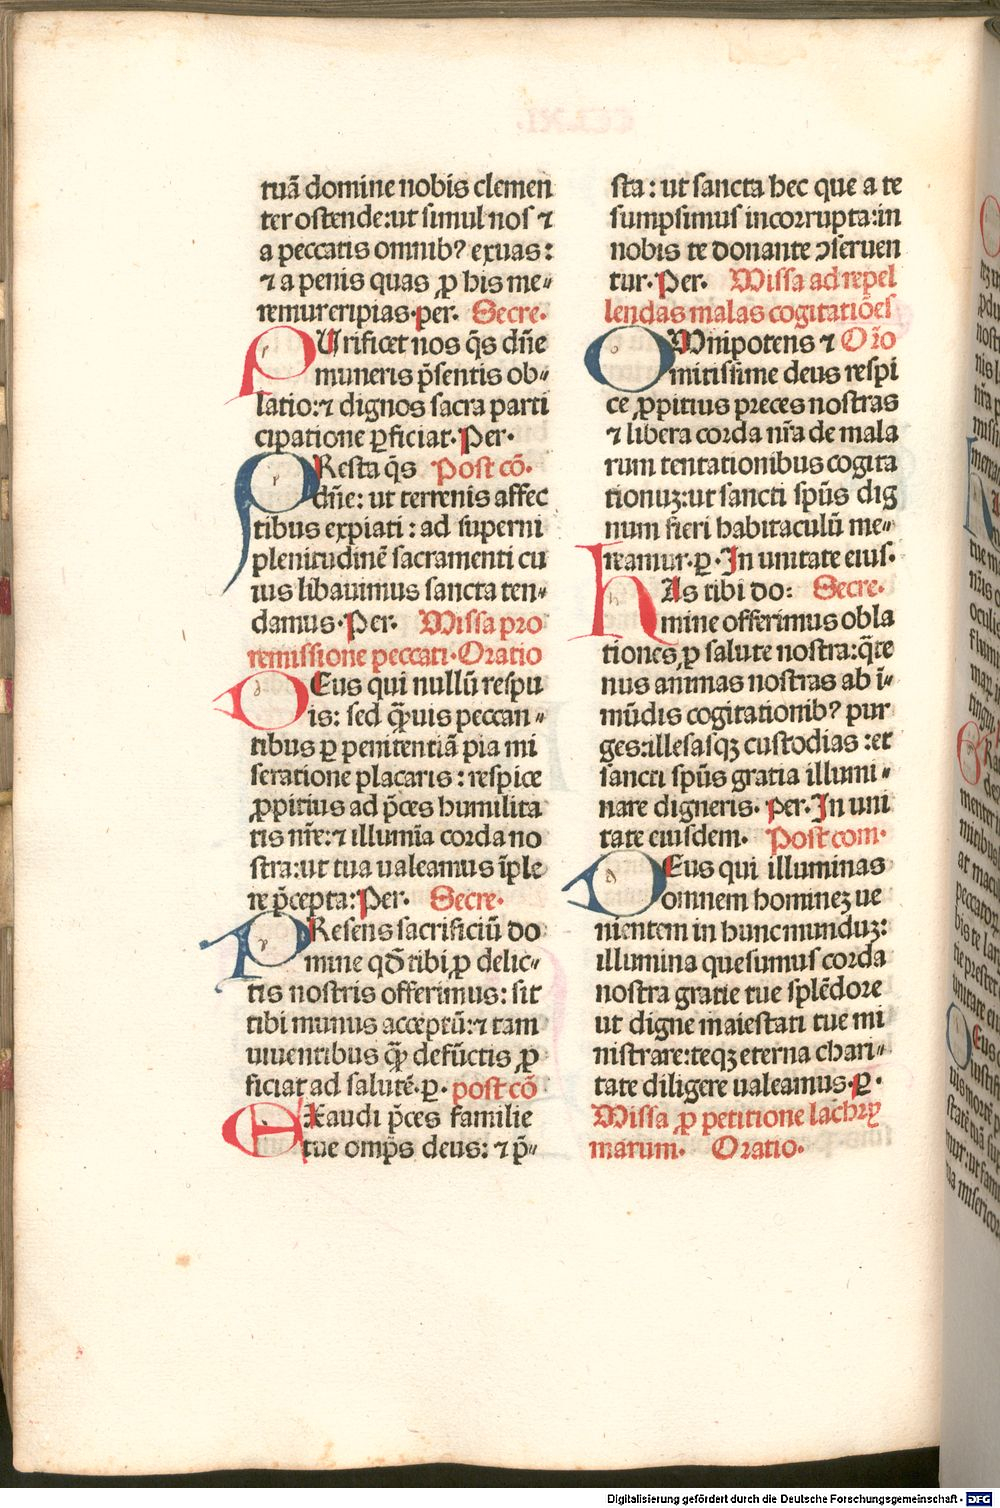 tuã domine nobis clemen
ter ostende:ut simul nos ⁊
a peccatis omnibꝰ exuas:
⁊ a penis quas ꝓ his me⸗
remur eripias.per. Secre.
PUrificet nos q̃s dñe
muneris p̃sentis ob⸗
latio:⁊ dignos sacra parti
cipatione ꝑficiat.Per.
PResta q̃s Post cõ.
dñe: ut terrenis affec
tibus expiati: ad superni
plenitudinẽ sacramenti cu
ius libauimus sancta ten⸗
damus.Per. Missa pro
remissione peccati.Oratio
DEus qui nullũ respu
is: sed q̃uis peccan⸗
tibus ꝑ penitentiã pia mi
seratione placaris: respice
ꝓpitius ad p̃ces humilita
tis nr̃e:⁊ illumĩa corda no
stra:ut tua ualeamus ĩple
re p̃cepta:Per. Secre.
PResens sacrificiũ do
mine qđ tibi ꝓ delic⸗
tis nostris offerimus: sit
tibi munus acceptũ:⁊ tam
uiuentibus q̃ꝫ defũctis ꝓ
ficiat ad salutẽ.ꝑ. post cõ
EXaudi p̃ces familie
tue omp̃s deus: ⁊ p̃⸗
sta: ut sancta hec que a te
sumpsimus incorrupta:in
nobis te donante ꝯseruen
tur.Per. Missa ad repel
lendas malas cogitatiões
OMnipotens ⁊ Or̃o
mitissime deus respi
ce ꝓpitius preces nostras
⁊ libera corda nr̃a de mala
rum tentationibus cogita
tionuꝫ:ut sancti spũs dig
num fieri habitaculũ me⸗
reamur.ꝑ.In unitate eius.
HAs tibi do: Secre.
mine offerimus obla
tiones ꝓ salute nostra:q̃te
nus animas nostras ab ĩ⸗
mũdis cogitationibꝰ pur
ges:illesasqꝫ custodias :et
sancti spũs gratia illumi⸗
nare digneris. Per.In uni
tate eiusdem. Post com.
DEus qui illuminas
omnem homineꝫ ue
nientem in hunc munduꝫ:
illumina quesumus corda
nostra gratie tue splẽdore
ut digne maiestati tue mi
nistrare:teqꝫ eterna chari⸗
tate diligere ualeamus.ꝑ.
Missa ꝓ petitione lachry
marum. Oratio.
Digitalisierung gefördert durch die Deutsche Forschungsgemeinschaft - DFG